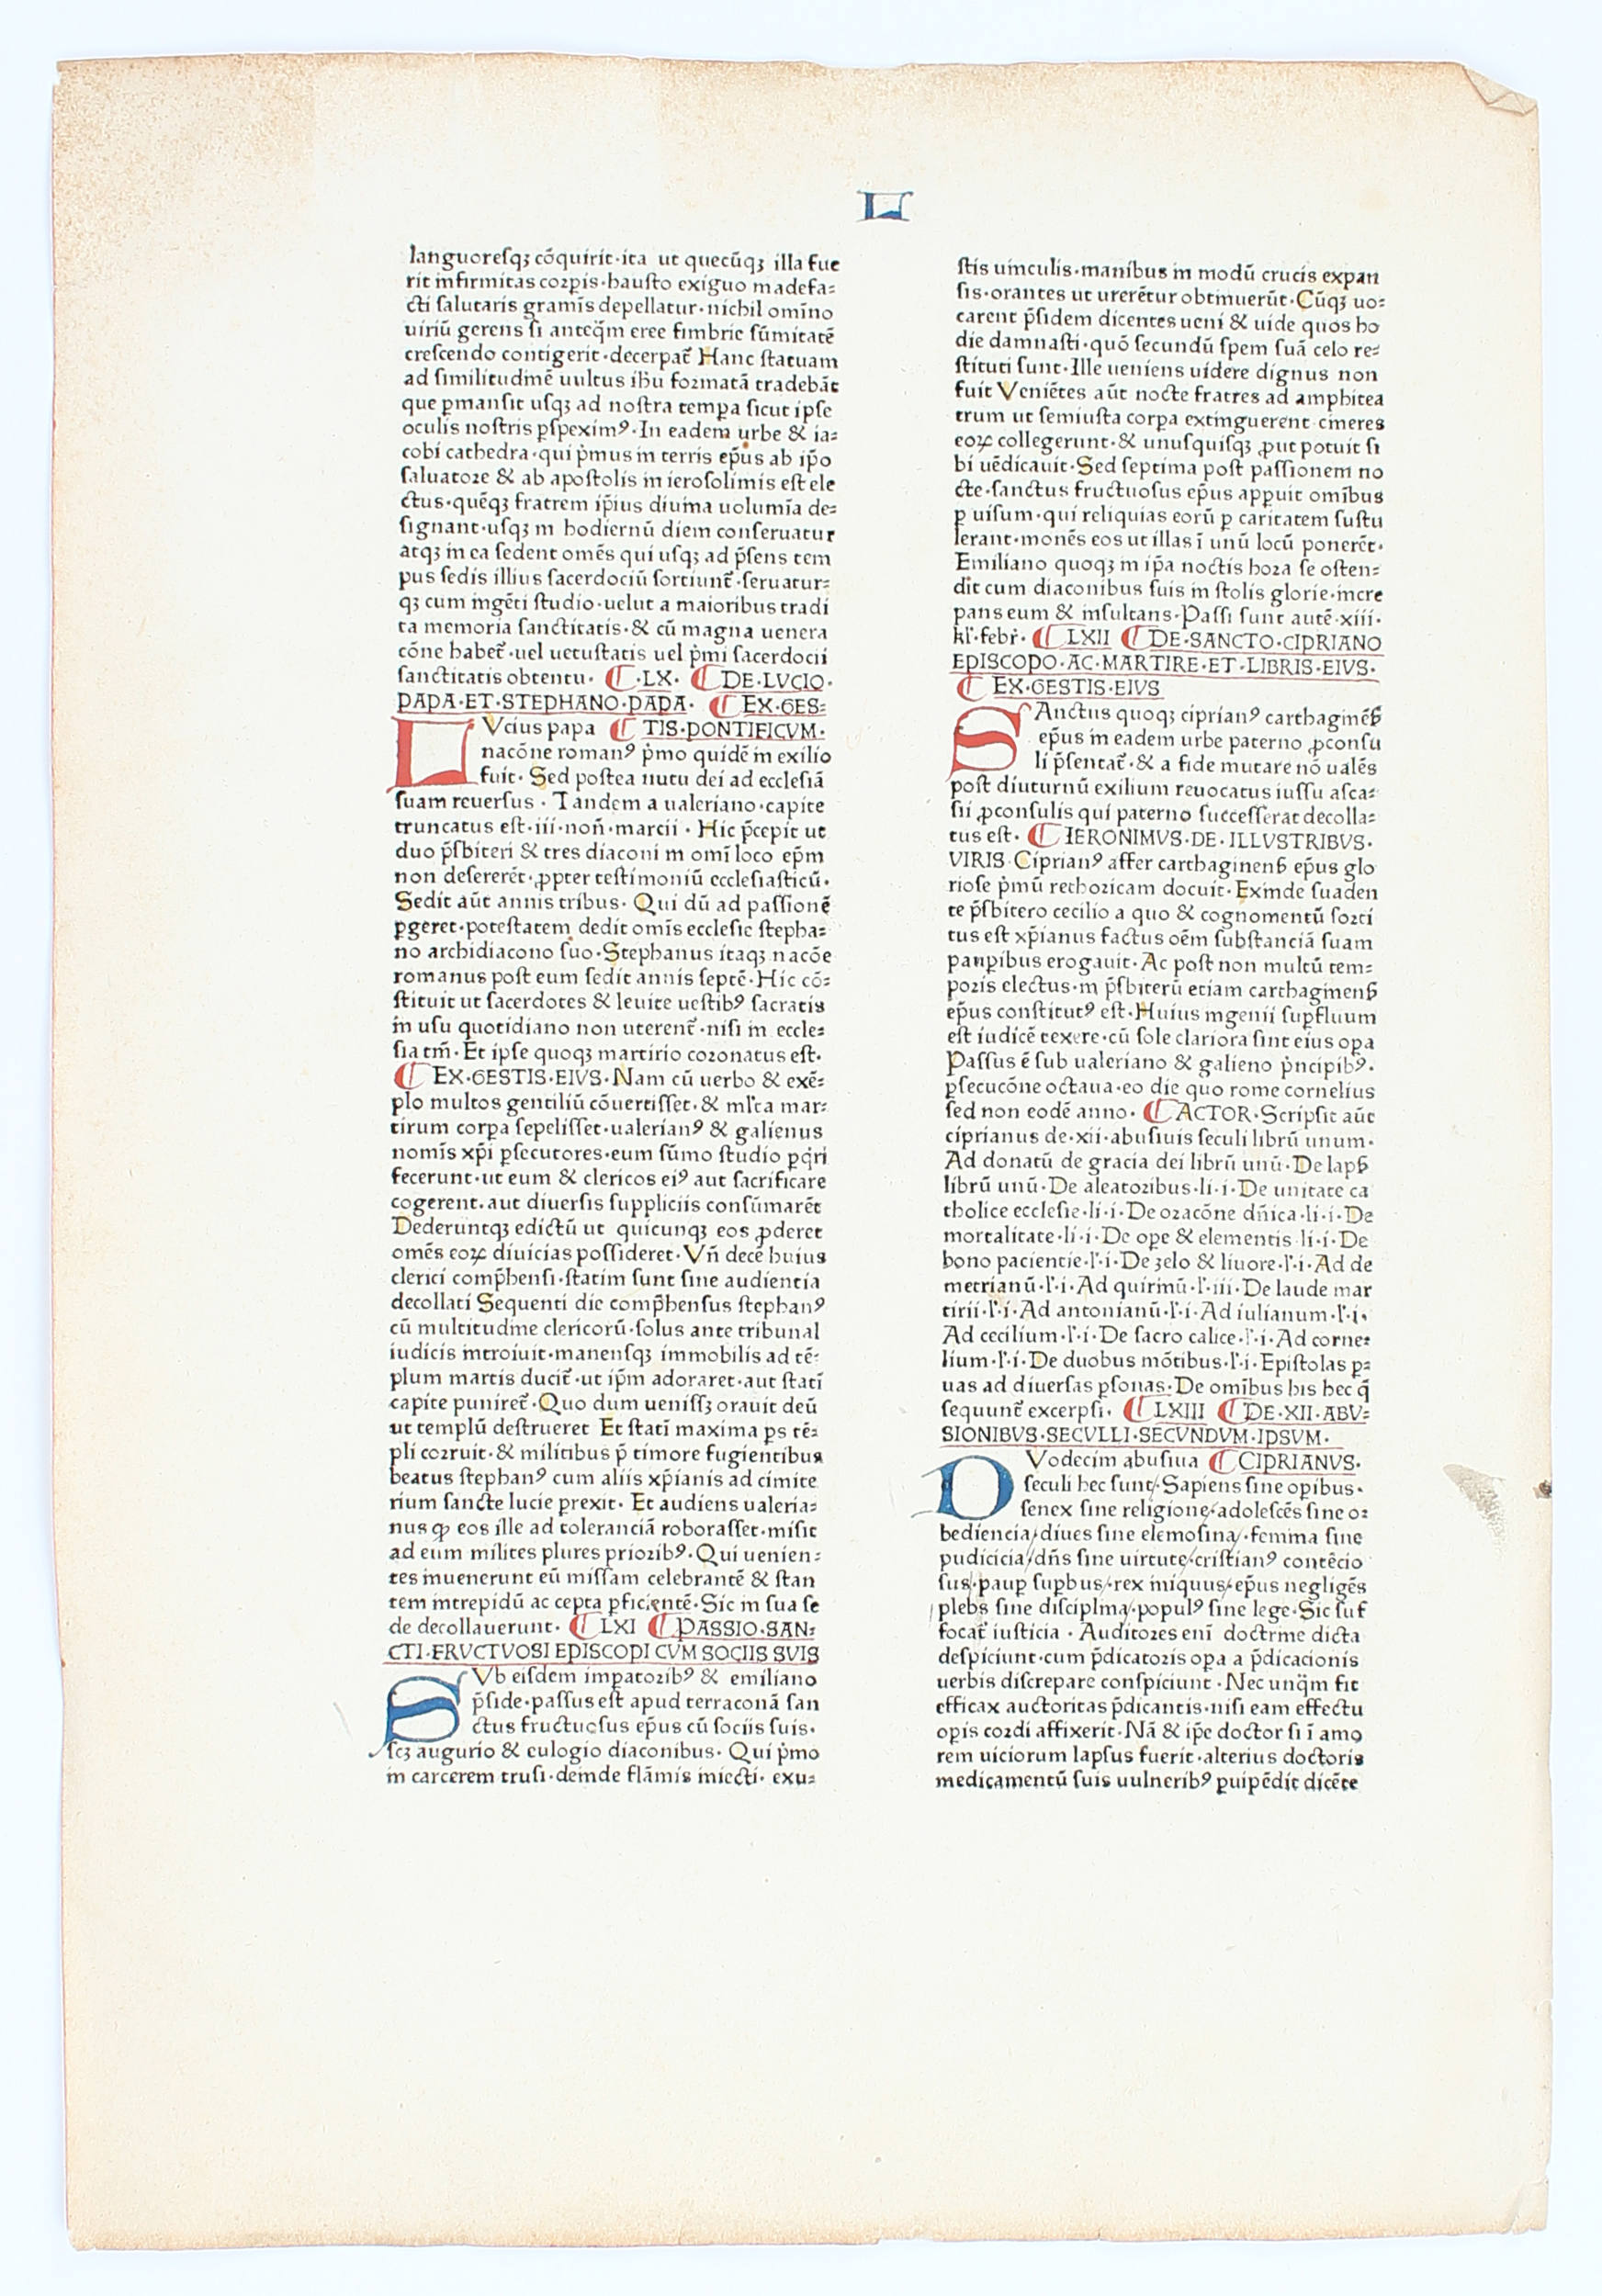 L
languoresqꝫ cōquirit·ita ut quecūqꝫ illa fue
rit infirmitas corꝑis·hausto exiguo madefa=
cti salutaris gramis̄ depellatur·nichil omīno
uiriū gerens si anteq̄m eree fimbrie sūmitatē
crescendo contigerit·decerpat᷑ Hanc statuam
ad similitudinē uultus ih̄u formatā tradebāt
que ꝑmansit usqꝫ ad nostra temꝑa sicut ipse
oculis nostris ꝑspexim⁹·In eadem urbe & ia=
cobi cathedra·qui p̍mus in terris ep̄us ab ip̄o
saluatore & ab apostolis in ierosolimis est ele
ctus·quēqꝫ fratrem ip̄ius diuina uolumīa de=
signant·usqꝫ in hodiernū diem conseruatur
atqꝫ in ea sedent omēs qui usqꝫ ad p̄sens tem
pus sedis illius sacerdociū sortiunt᷑·seruatur=
qꝫ cum ingēti studio·uelut a maioribus tradi
ta memoria sanctitatis·& cū magna uenera
cōne habet᷑·uel uetustatis uel p̍mi sacerdocii
sanctitatis obtentu· ⸿·LX· ⸿DE·LVCIO·
PAPA·ET·STEPHANO·PAPA· ⸿EX·GES=
LVcius papa ⸿ TIS·PONTIFICVM·
nacōne roman⁹ p̍mo quidē in exilio
fuit· Sed postea nutu dei ad ecclesiā
suam reuersus · Tandem a ualeriano·capite
truncatus est·iii·non̄·marcii · Hic p̄cepit ut
duo p̄sbiteri & tres diaconi in omī loco ep̄m
non desererēt·ꝓpter testimoniū ecclesiasticū·
Sedit aūt annis tribus· Qui dū ad passionē
ꝑgeret·potestatem dedit omīs ecclesie stepha=
no archidiacono suo·Stephanus itaqꝫ nacōe
romanus post eum sedit annis septē·Hic cō=
stituit ut sacerdotes & leuite uestib⁹ sacratis
in usu quotidiano non uterent᷑·nisi in eccle=
sia tm̄·Et ipse quoqꝫ martirio coronatus est·
⸿ EX·GESTIS·EIVS·Nam cū uerbo & exē=
plo multos gentiliū cōuertisset·& ml̍ta mar=
tirum corꝑa sepelisset·ualerian⁹ & galienus
nomīs xp̄i ꝑsecutores·eum sūmo studio ꝑq̍ri
fecerunt·ut eum & clericos ei⁹ aut sacrificare
cogerent·aut diuersis suppliciis consūmarēt
Dederuntqꝫ edictū ut quicunqꝫ eos ꝓderet
omēs eoꝝ diuicias possideret·Vn̄ decē huius
clerici comp̄hensi·statim sunt sine audientia
decollati Sequenti die comp̄hensus stephan⁹
cū multitudine clericorū·solus ante tribunal
iudicis introiuit·manensqꝫ immobilis ad tē=
plum martis ducit᷑·ut ip̄m adoraret·aut statī
capite puniret᷑·Quo dum uenissꝫ orauit deū
ut templū destrueret Et statī maxima ꝑs tē=
pli corruit·& militibus p̄ timore fugientibus
beatus stephan⁹ cum aliis xp̄ianis ad cimite
rium sancte lucie ꝑrexit· Et audiens ualeria=
nus ꝙ eos ille ad toleranciā roborasset·misit
ad eum milites plures priorib⁹·Qui uenien=
tes inuenerunt eū missam celebrantē & stan
tem intrepidū ac cepta ꝑficientē·Sic in sua se
de decollauerunt· ⸿LXI ⸿PASSIO·SAN=
CTI·FRVCTVOSI EPISCOPI CVM SOCIIS SVIS
SVb eisdem imꝑatorib⁹ & emiliano
p̄side·passus est apud terraconā san
ctus fructuosus ep̄us cū sociis suis·
scꝫ augurio & eulogio diaconibus· Qui p̍mo
in carcerem trusi·deinde flāmis iniecti· exu=
stis uinculis·manibus in modū crucis expan
sis·orantes ut urerētur obtinuerūt·Cūqꝫ uo=
carent p̄sidem dicentes ueni & uide quos ho
die damnasti·quō secundū spem suā celo re=
stituti sunt·Ille ueniens uidere dignus non
fuit Veniētes aūt nocte fratres ad amphitea
trum ut semiusta corꝑa extinguerent·cineres
eoꝝ collegerunt·& unusquisqꝫ ꝓut potuit si
bi uēdicauit·Sed septima post passionem no
cte·sanctus fructuosus ep̄us apꝑuit omībus
ꝑ uisum·qui reliquias eorū ꝑ caritatem sustu
lerant·monēs eos ut illas ī unū locū ponerēt·
Emiliano quoqꝫ in ip̄a noctis hora se osten=
dit cum diaconibus suis in stolis glorie·incre
pans eum & insultans·Passi sunt autē·xiii·
kl̍·febr̍· ⸿LXII ⸿DE·SANCTO·CIPRIANO
EPISCOPO·AC·MARTIRE·ET·LIBRIS·EIVS·
⸿ EX·GESTIS·EIVS
SAnctus quoqꝫ ciprian⁹ carthaginēẞ
ep̄us in eadem urbe paterno ꝓconsu
li p̄sentat᷑·& a fide mutare nō ualēs
post diuturnū exilium reuocatus iussu asca=
sii ꝓconsulis qui paterno successerat decolla=
tus est· ⸿IERONIMVS·DE·ILLVSTRIBVS·
VIRIS·Ciprian⁹ affer carthaginenẞ ep̄us glo
riose p̍mū rethoricam docuit·Exinde suaden
te p̄sbitero cecilio a quo & cognomentū sorti
tus est xp̄ianus factus oēm substanciā suam
pauꝑibus erogauit· Ac post non multū tem=
poris electus·in p̄sbiterū etiam carthaginenẞ
ep̄us constitut⁹ est·Huius ingenii suꝑfluum
est iudicē texere·cū sole clariora sint eius oꝑa
Passus ē sub ualeriano & galieno p̍ncipib⁹·
ꝑsecucōne octaua·eo die quo rome cornelius
sed non eodē anno· ⸿ACTOR·Scripsit aūt
ciprianus de·xii·abusiuis seculi librū unum·
Ad donatū de gracia dei librū unū·De lapẞ
librū unū·De aleatoribus·li·i·De unitate ca
tholice ecclesie·li·i·De oracōne dn̄ica·li·i·De
mortalitate·li·i·De oꝑe & elementis·li·i·De
bono paciencie·l̍·i·De zelo & liuore·l̍·i·Ad de
metrianū·l̍·i·Ad quirinū·l̍·iii·De laude mar
tirii·l̍·i·Ad antonianū·l̍·i·Ad iulianum·l̍·i·
Ad cecilium·l̍·i·De sacro calice·l̍·i·Ad corne=
lium·l̍·i·De duobus mōtibus·l̍·i·Epistolas ꝑ=
uas ad diuersas ꝑsonas·De omībus his hec q̄
sequunt᷑ excerpsi· ⸿LXIII ⸿DE·XII·ABV=
SIONIBVS·SECVLLI·SECVNDVM·IPSVM·
DVodecim abusiua ⸿CIPRIANVS·
seculi hec sunt/·Sapiens sine oꝑibus·
senex sine religione/·adolescēs sine o=
bediencia/·diues sine elemosina/·femina sine
pudicicia/·dn̄s sine uirtute/·cristian⁹ contēcio
sus/·pauꝑ suꝑbus/·rex iniquus/·ep̄us negligēs
plebs sine disciplina/·popul⁹ sine lege·Sic suf
focat᷑ iusticia · Auditores enī doctrine dicta
despiciunt·cum p̄dicatoris oꝑa a p̄dicacionis
uerbis discrepare conspiciunt·Nec unq̄m fit
efficax auctoritas p̄dicantis·nisi eam effectu
oꝑis cordi affixerit·Nā & ip̄e doctor si ī amo
rem uiciorum lapsus fuerit·alterius doctoris
medicamentū suis uulnerib⁹ ꝑuipēdit dicēte